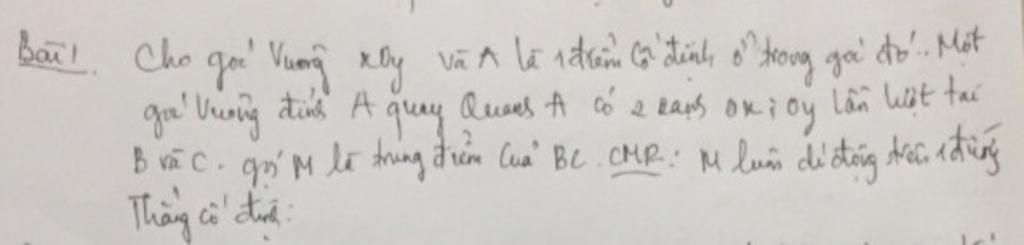 Bài 1. Cho góc Vuông xOy và A là 1 điểm Cố định ở trong góc đó. Một
góc Vuông đỉnh A quay Quanh A có 2 cạnh ox; oy lần lượt tại
B và C. gọi M là trung điểm Của BC. CMR: M luôn di động trên 1 đường
Thẳng cố định: